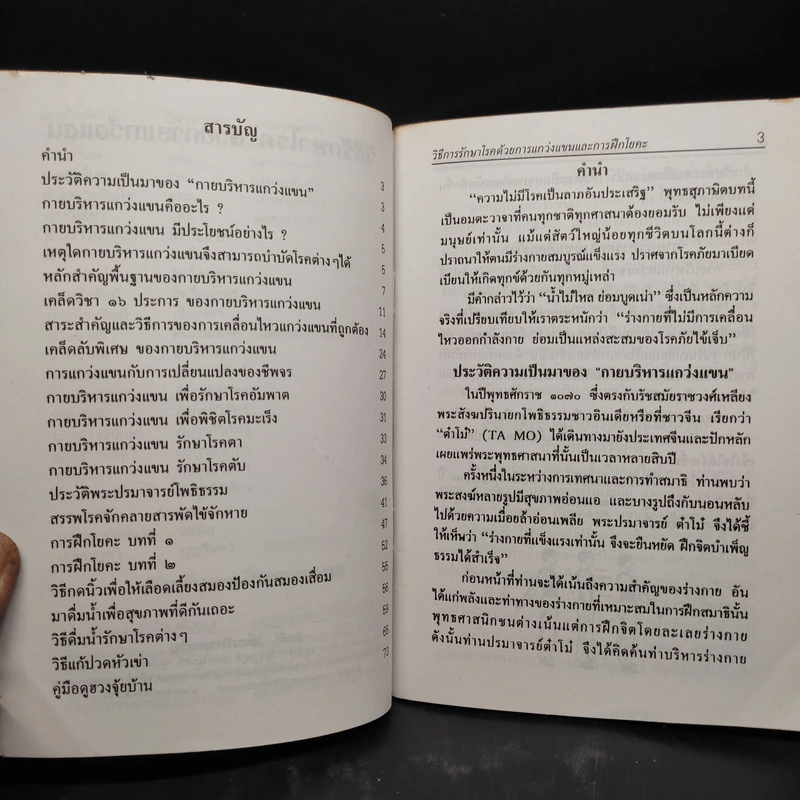 สารบัญ
คำนำ 3
ประวัติความเป็นมาของ “กายบริหารแกว่งแขน” 3
กายบริหารแกว่งแขนคืออะไร ? 4
กายบริหารแกว่งแขน มีประโยชน์อย่างไร ? 5
เหตุใดกายบริหารแกว่งแขนจึงสามารถบำบัดโรคต่างๆได้ 5
หลักสำคัญพื้นฐานของกายบริหารแกว่งแขน 7
เคล็ดวิชา ๑๖ ประการ ของกายบริหารแกว่งแขน 11
สาระสำคัญและวิธีการของการเคลื่อนไหวแกว่งแขนที่ถูกต้อง 14
เคล็ดลับพิเศษ ของกายบริหารแกว่งแขน 24
การแกว่งแขนกับการเปลี่ยนแปลงของชีพจร 27
กายบริหารแกว่งแขน เพื่อรักษาโรคอัมพาต 30
กายบริหารแกว่งแขน เพื่อพิชิตโรคมะเร็ง 31
กายบริหารแกว่งแขน รักษาโรคตา 33
กายบริหารแกว่งแขน รักษาโรคตับ 34
ประวัติพระปรมาจารย์โพธิธรรม 36
สรรพโรคจักคลายสารพัดไข้จักหาย 41
การฝึกโยคะ บทที่ ๑ 47
การฝึกโยคะ บทที่ ๒ 52
วิธีกดนิ้วเพื่อให้เลือดเลี้ยงสมองป้องกันสมองเสื่อม 55
มาดื่มน้ำเพื่อสุขภาพที่ดีกันเถอะ 56
วิธีดื่มน้ำรักษาโรคต่างๆ 59
วิธีแก้ปวดหัวเข่า 65
คู่มือดูฮวงจุ้ยบ้าน 73
วิธีการรักษาโรคด้วยการแกว่งแขนและการฝึกโยคะ 3
คำนำ
“ความไม่มีโรคเป็นลาภอันประเสริฐ” พุทธสุภาษิตบทนี้
เป็นอมตะวาจาที่คนทุกชาติทุกศาสนาต้องยอมรับ ไม่เพียงแต่
มนุษย์เท่านั้น แม้แต่สัตว์ใหญ่น้อยทุกชีวิตบนโลกนี้ต่างก็
ปราถนาให้ตนมีร่างกายสมบูรณ์แข็งแรง ปราศจากโรคภัยมาเบียด
เบียนให้เกิดทุกข์ด้วยกันทุกหมู่เหล่า
มีคำกล่าวไว้ว่า “น้ำไม่ไหล ย่อมบูดเน่า” ซึ่งเป็นหลักความ
จริงที่เปรียบเทียบให้เราตระหนักว่า “ร่างกายที่ไม่มีการเคลื่อน
ไหวออกกำลังกาย ย่อมเป็นแหล่งสะสมของโรคภัยไข้เจ็บ”
ประวัติความเป็นมาของ “กายบริหารแกว่งแขน”
ในปีพุทธศักราช ๑๐๗๐ ซึ่งตรงกับรัชสมัยราชวงศ์เหลียง
พระสังฆปรินายกโพธิธรรมชาวอินเดียหรือที่ชาวจีน เรียกว่า
“ตั๋วโม๋” (TA MO) ได้เดินทางมายังประเทศจีนและปักหลัก
เผยแพร่พระพุทธศาสนาที่นั้นเป็นเวลาหลายสิบปี
ครั้งหนึ่งในระหว่างการเทศนาและการทำสมาธิ ท่านพบว่า
พระสงฆ์หลายรูปมีสุขภาพอ่อนแอ และบางรูปถึงกับนอนหลับ
ไปด้วยความเมื่อยล้าอ่อนเพลีย พระปรมาจารย์ ตั๋วโม๋ จึงได้ชี้
ให้เห็นว่า “ร่างกายที่แข็งแรงเท่านั้น จึงจะยืนหยัด ฝึกจิตบำเพ็ญ
ธรรมได้สำเร็จ”
ก่อนหน้าที่ท่านจะได้เน้นถึงความสำคัญของร่างกาย อัน
ได้แก่พลังและท่าทางของร่างกายที่เหมาะสมในการฝึกสมาธินั้น
พุทธศาสนิกชนต่างเน้นแต่การฝึกจิตโดยละเลยร่างกาย
ดังนั้นท่านปรมาจารย์ตั๋วโม๋ จึงได้คิดค้นท่าบริหารร่างกาย